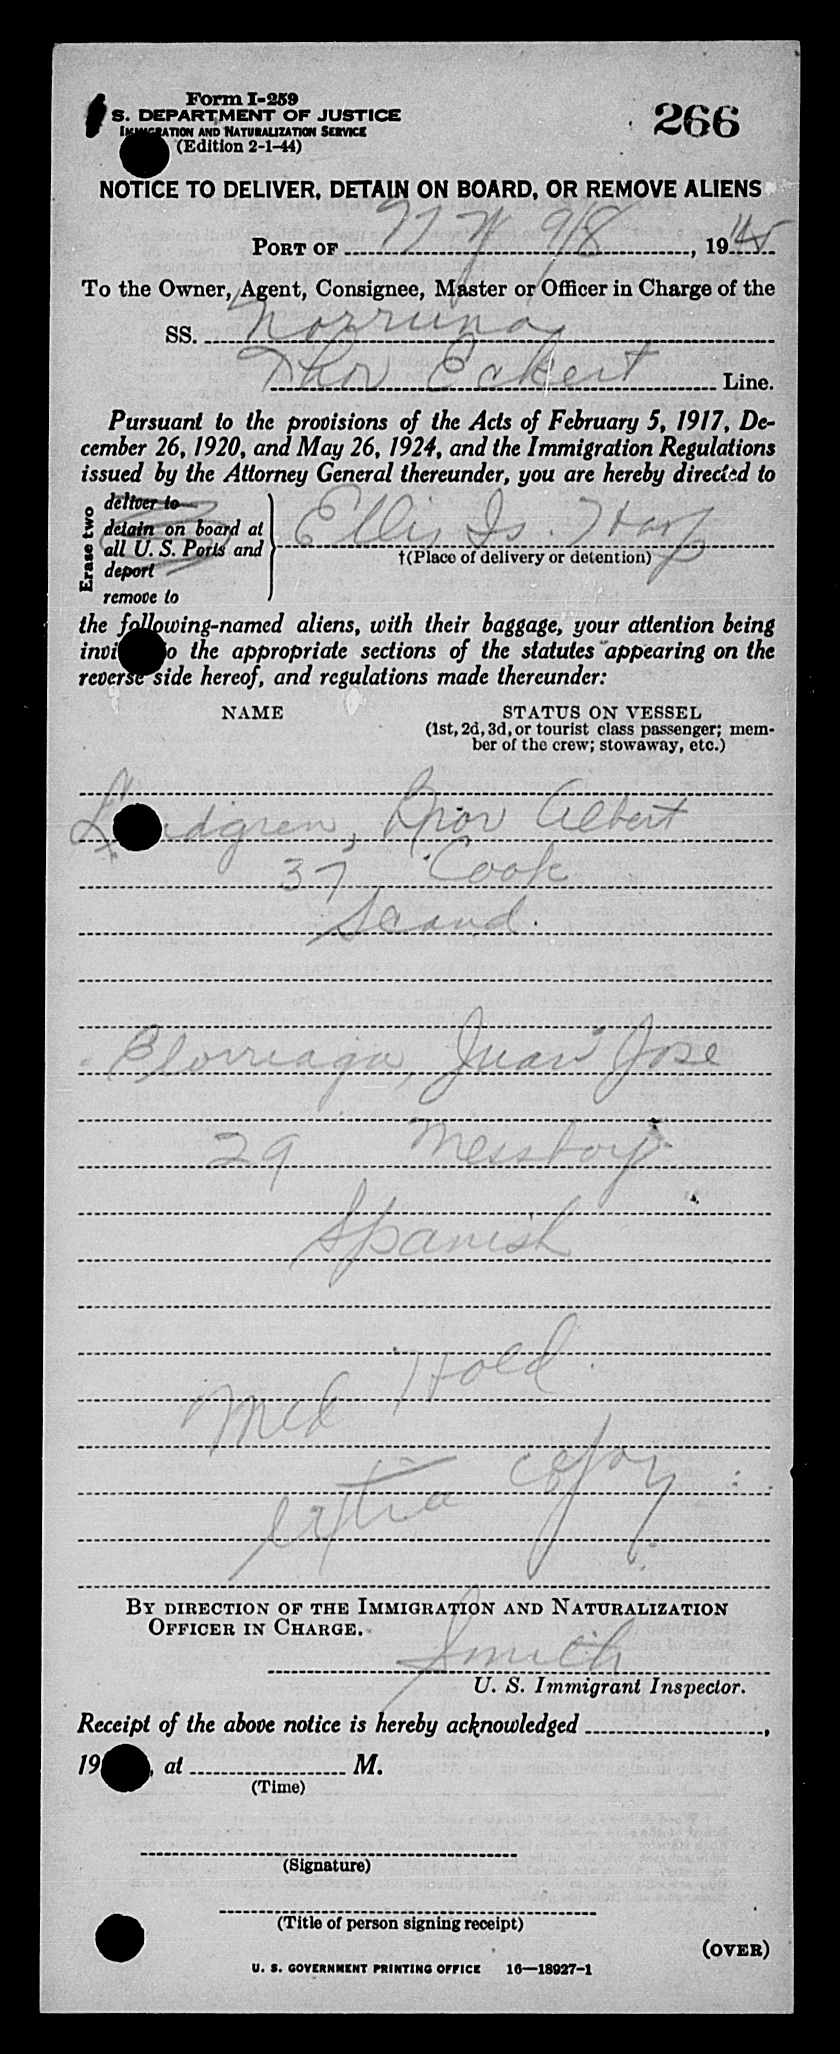 Form I-259
S. DEPARTMENT OF JUSTICE
IMMIGRATION AND NATURALIZATION SERVICE
(Edition 2-1-44)
266
NOTICE TO DELIVER, DETAIN ON BOARD, OR REMOVE ALIENS
PORT OF N Y 9/8, 1945
To the Owner, Agent, Consignee, Master or Officer in Charge of the
SS. Norruna
Thor Eckert Line.
Pursuant to the provisions of the Acts of February 5, 1917, De-
cember 26, 1920, and May 26, 1924, and the Immigration Regulations
issued by the Attorney General thereunder, you are hereby directed to
Erase two
deliver to
detain on board at
all U. S. Ports and
deport
remove to
Ellis Is. Hosp
†(Place of delivery or detention)
the following-named aliens, with their baggage, your attention being
invi o the appropriate sections of the statutes appearing on the
reverse side hereof, and regulations made thereunder:
NAME STATUS ON VESSEL
(1st, 2d, 3d, or tourist class passenger; mem-
ber of the crew; stowaway, etc.)
L dgren, Albert
37 Cook
Scand.
Elorriaga, Juan Jose
29 Messboy
Spanish
Med Hold.
extra copy
BY DIRECTION OF THE IMMIGRATION AND NATURALIZATION
OFFICER IN CHARGE.
Smith
U. S. Immigrant Inspector.
Receipt of the above notice is hereby acknowledged ,
19 , at M.
(Time)
(Signature)
(Title of person signing receipt)
(OVER)
U. S. GOVERNMENT PRINTING OFFICE 16—18927-1